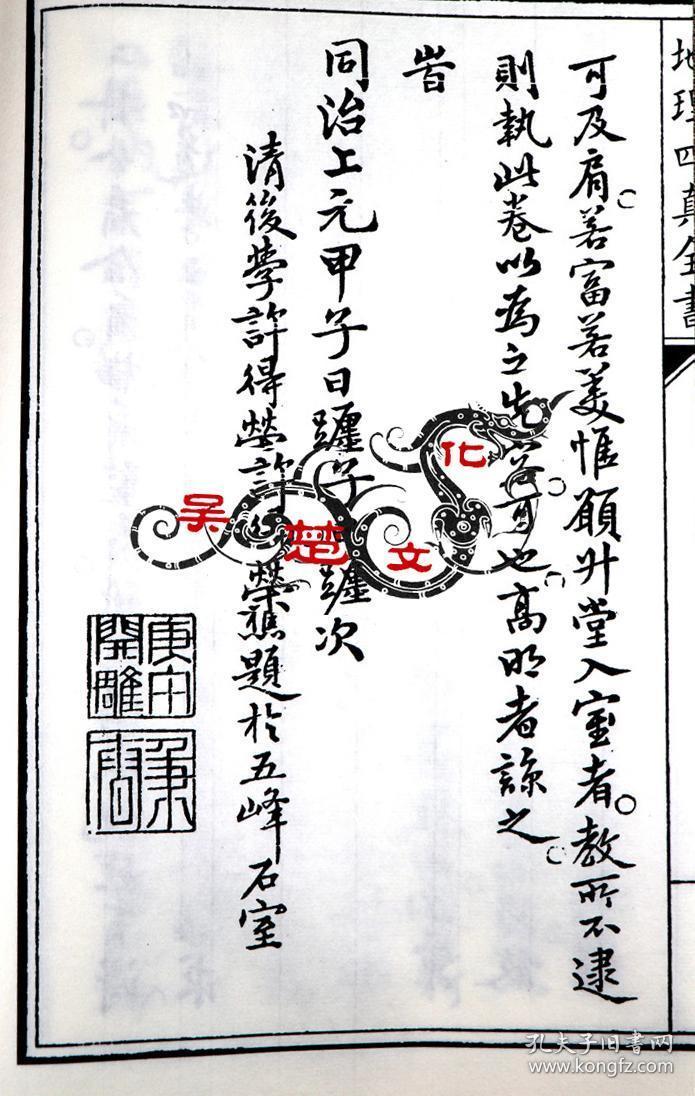 地理四真全書
可及肩若富若美惟願升堂入室者教所不逮
則執此卷以為之先容可也高明者諒之
旹
同治上元甲子日躔子 躔次
清後學許得 許 榮 題於五峰石室
庚申
開雕
吴楚文化
孔夫子旧书网
www.kongfz.com